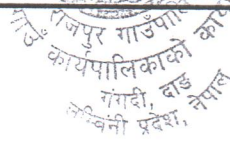 राजपुर गाउँपा
गाउँ कार्यपालिकाको कार्य
गंगदी, दाङ
लुम्बिनी प्रदेश, नेपाल